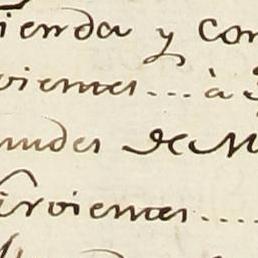 ienda y con
vientes... à
udes de M
irvientes....